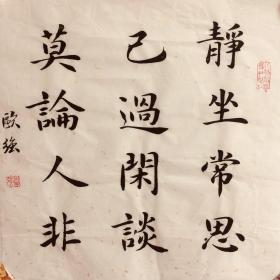 靜坐常思
己過閑談
莫論人非
歐強